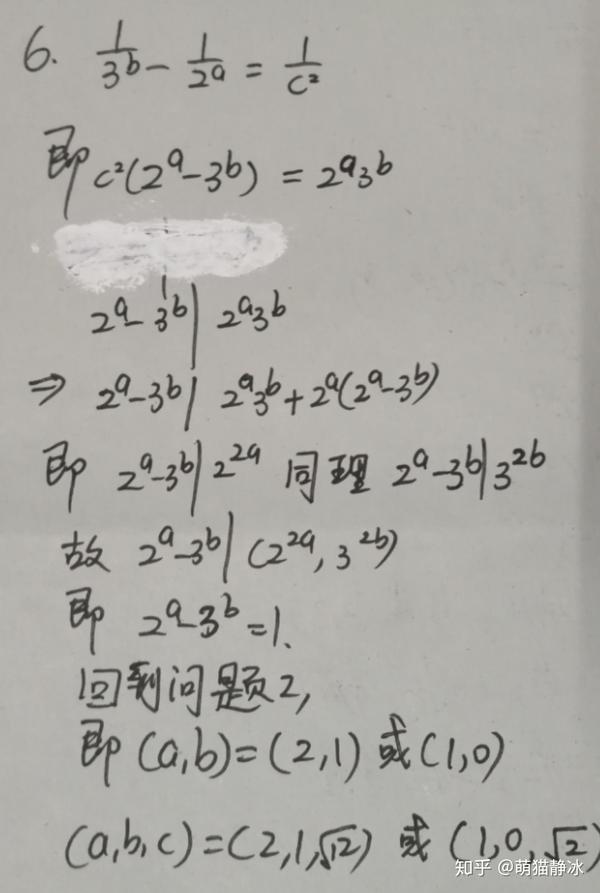 6. 1/3^b - 1/2^a = 1/c²
即 c²(2^a-3^b) = 2^a3^b
2^a-3^b | 2^a3^b
⇒ 2^a-3^b | 2^a3^b+2^a(2^a-3^b)
即 2^a-3^b | 2^{2a} 同理 2^a-3^b | 3^{2b}
故 2^a-3^b | (2^{2a}, 3^{2b})
即 2^a-3^b=1.
回到问题2,
即 (a,b)=(2,1) 或 (1,0)
(a,b,c)=(2,1,√12) 或 (1,0,√2)
知乎 @萌猫静冰